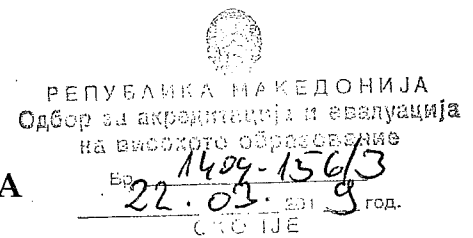 РЕПУБЛИКА МАКЕДОНИЈА
Одбор за акредитација и евалуација
на високото образование
Бр. 1409-156/3
А
22.03. 2019 год.
СКОПЈЕ